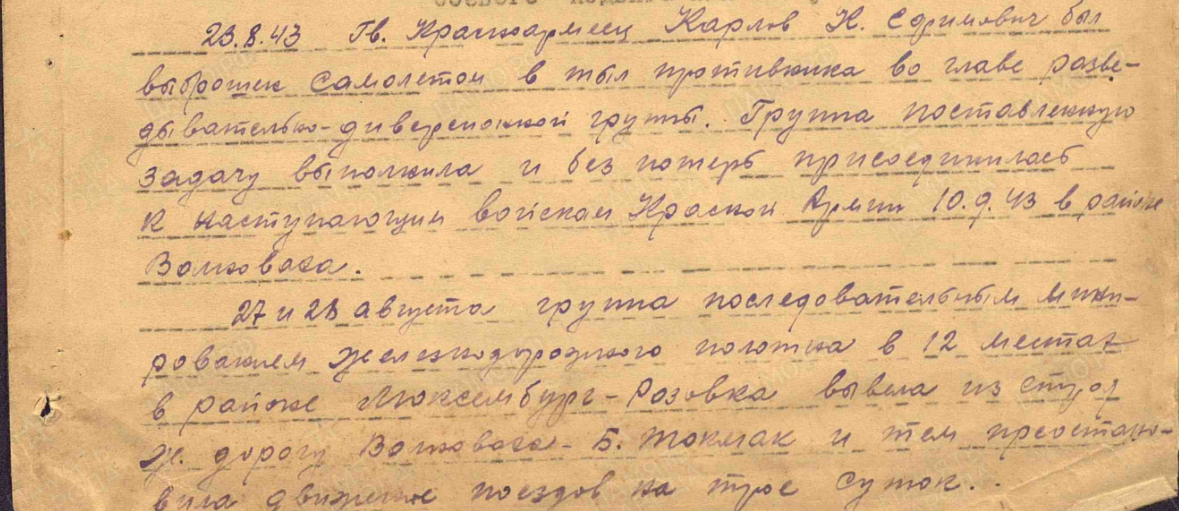 23.8.43 Гв. Красноармеец Карлов К. Ефимович был
выброшен самолетом в тыл противника во главе разве-
дывательно-диверсионной группы. Группа поставленную
задачу выполнила и без потерь присоединилась
к наступающим войскам Красной Армии 10.9.43 в районе
Волноваха.
27 и 28 августа группа последовательным мини-
рованием железнодорожного полотна в 12 местах
в районе Люксембург-Розовка вывела из строя
ж. дорогу Волноваха - Б. Токмак и тем приостано-
вила движение поездов на трое суток.